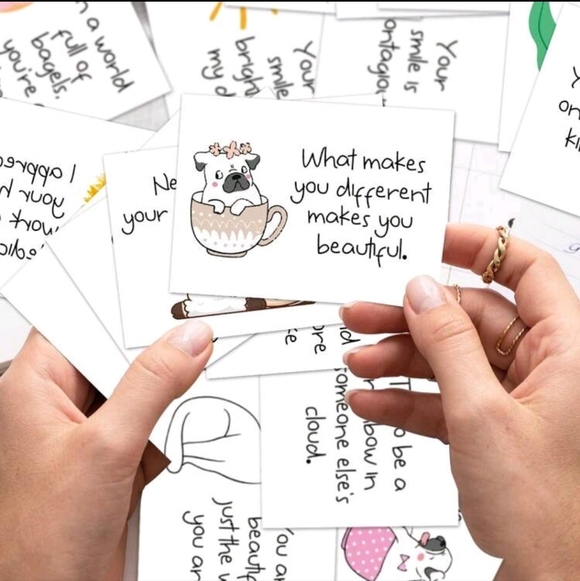 n a world
full of
bagels.
you're
Your
smile
bright
my d
Your
smile is
ontagiou
on
kin
I appre
your h
work
Ne
your
What makes
you different
makes you
beautiful.
ore
To be a
bow in
someone else's
cloud.
You ar
beautif
just the w
you ar